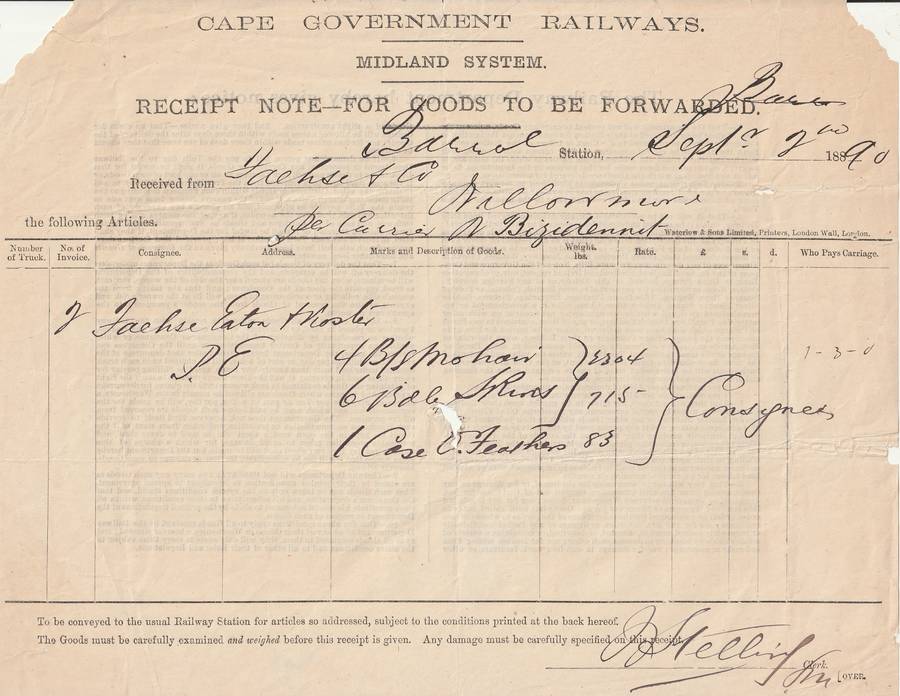 CAPE GOVERNMENT RAILWAYS.
MIDLAND SYSTEM.
RECEIPT NOTE—FOR GOODS TO BE FORWARDED.
Station, Sept 2nd 1890
Received from Faehse & Co
Willowmore
the following Articles.
Per Carrier
Waterlow & Sons Limited, Printers, London Wall, London.
Number of Truck. No. of Invoice. Consignee. Address. Marks and Description of Goods. Weight. lbs. Rate. £ s. d. Who Pays Carriage.
2 Faehse Eaton & Koster
P.E 4 B/s Mohair 2204 1-3-0
6 Bdls Skins 715 Consignee
1 Case O. Feathers 83
To be conveyed to the usual Railway Station for articles so addressed, subject to the conditions printed at the back hereof.
The Goods must be carefully examined and weighed before this receipt is given. Any damage must be carefully specified on this receipt.
Clerk.
[OVER.